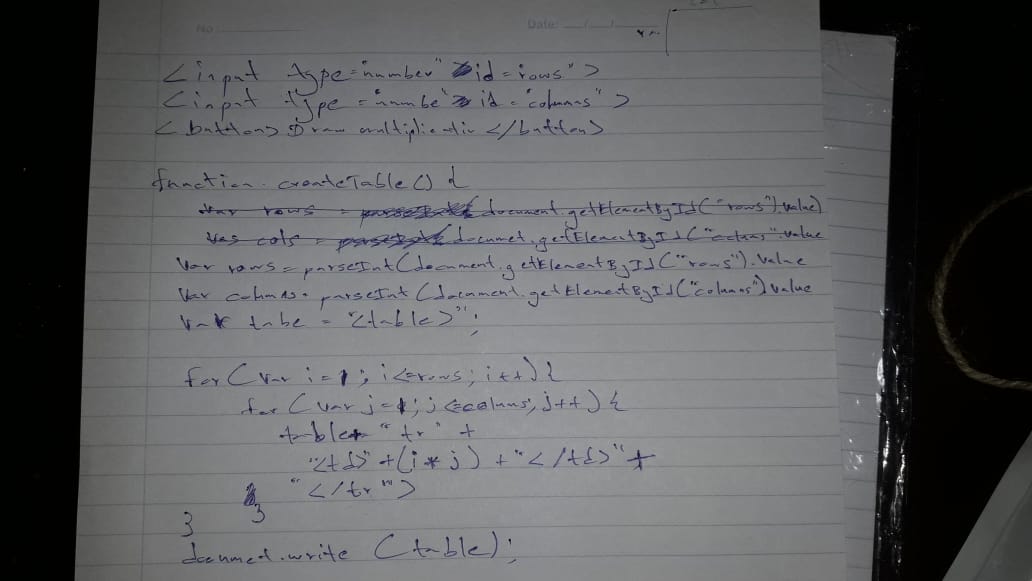 No :
Date: __/__/__
<input type="number" id = rows" >
<input type = "numbe" id = "columns" >
<button> Draw </button>
function createTable () {
var rows = document.getElementById("rows").value)
var cols = documet.getElementById(".value
Var rows = parseInt(document.getElementById("rows").value
Var columns = parseInt (document.getElementById("columns") value
Var tabe = "<table>";
for (var i = 1; i<=rows; i++) {
for (var j = 1; j <=colums; j++) {
table+ "tr" +
"<td>" + (i * j) + "</td>" +
"</tr">
}
}
document.write (table);